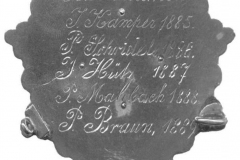 P. Kamper 1885.
P. Schröder 1886.
P. Hüls 1887
P. Mallbach 1888
P. Braun, 1889